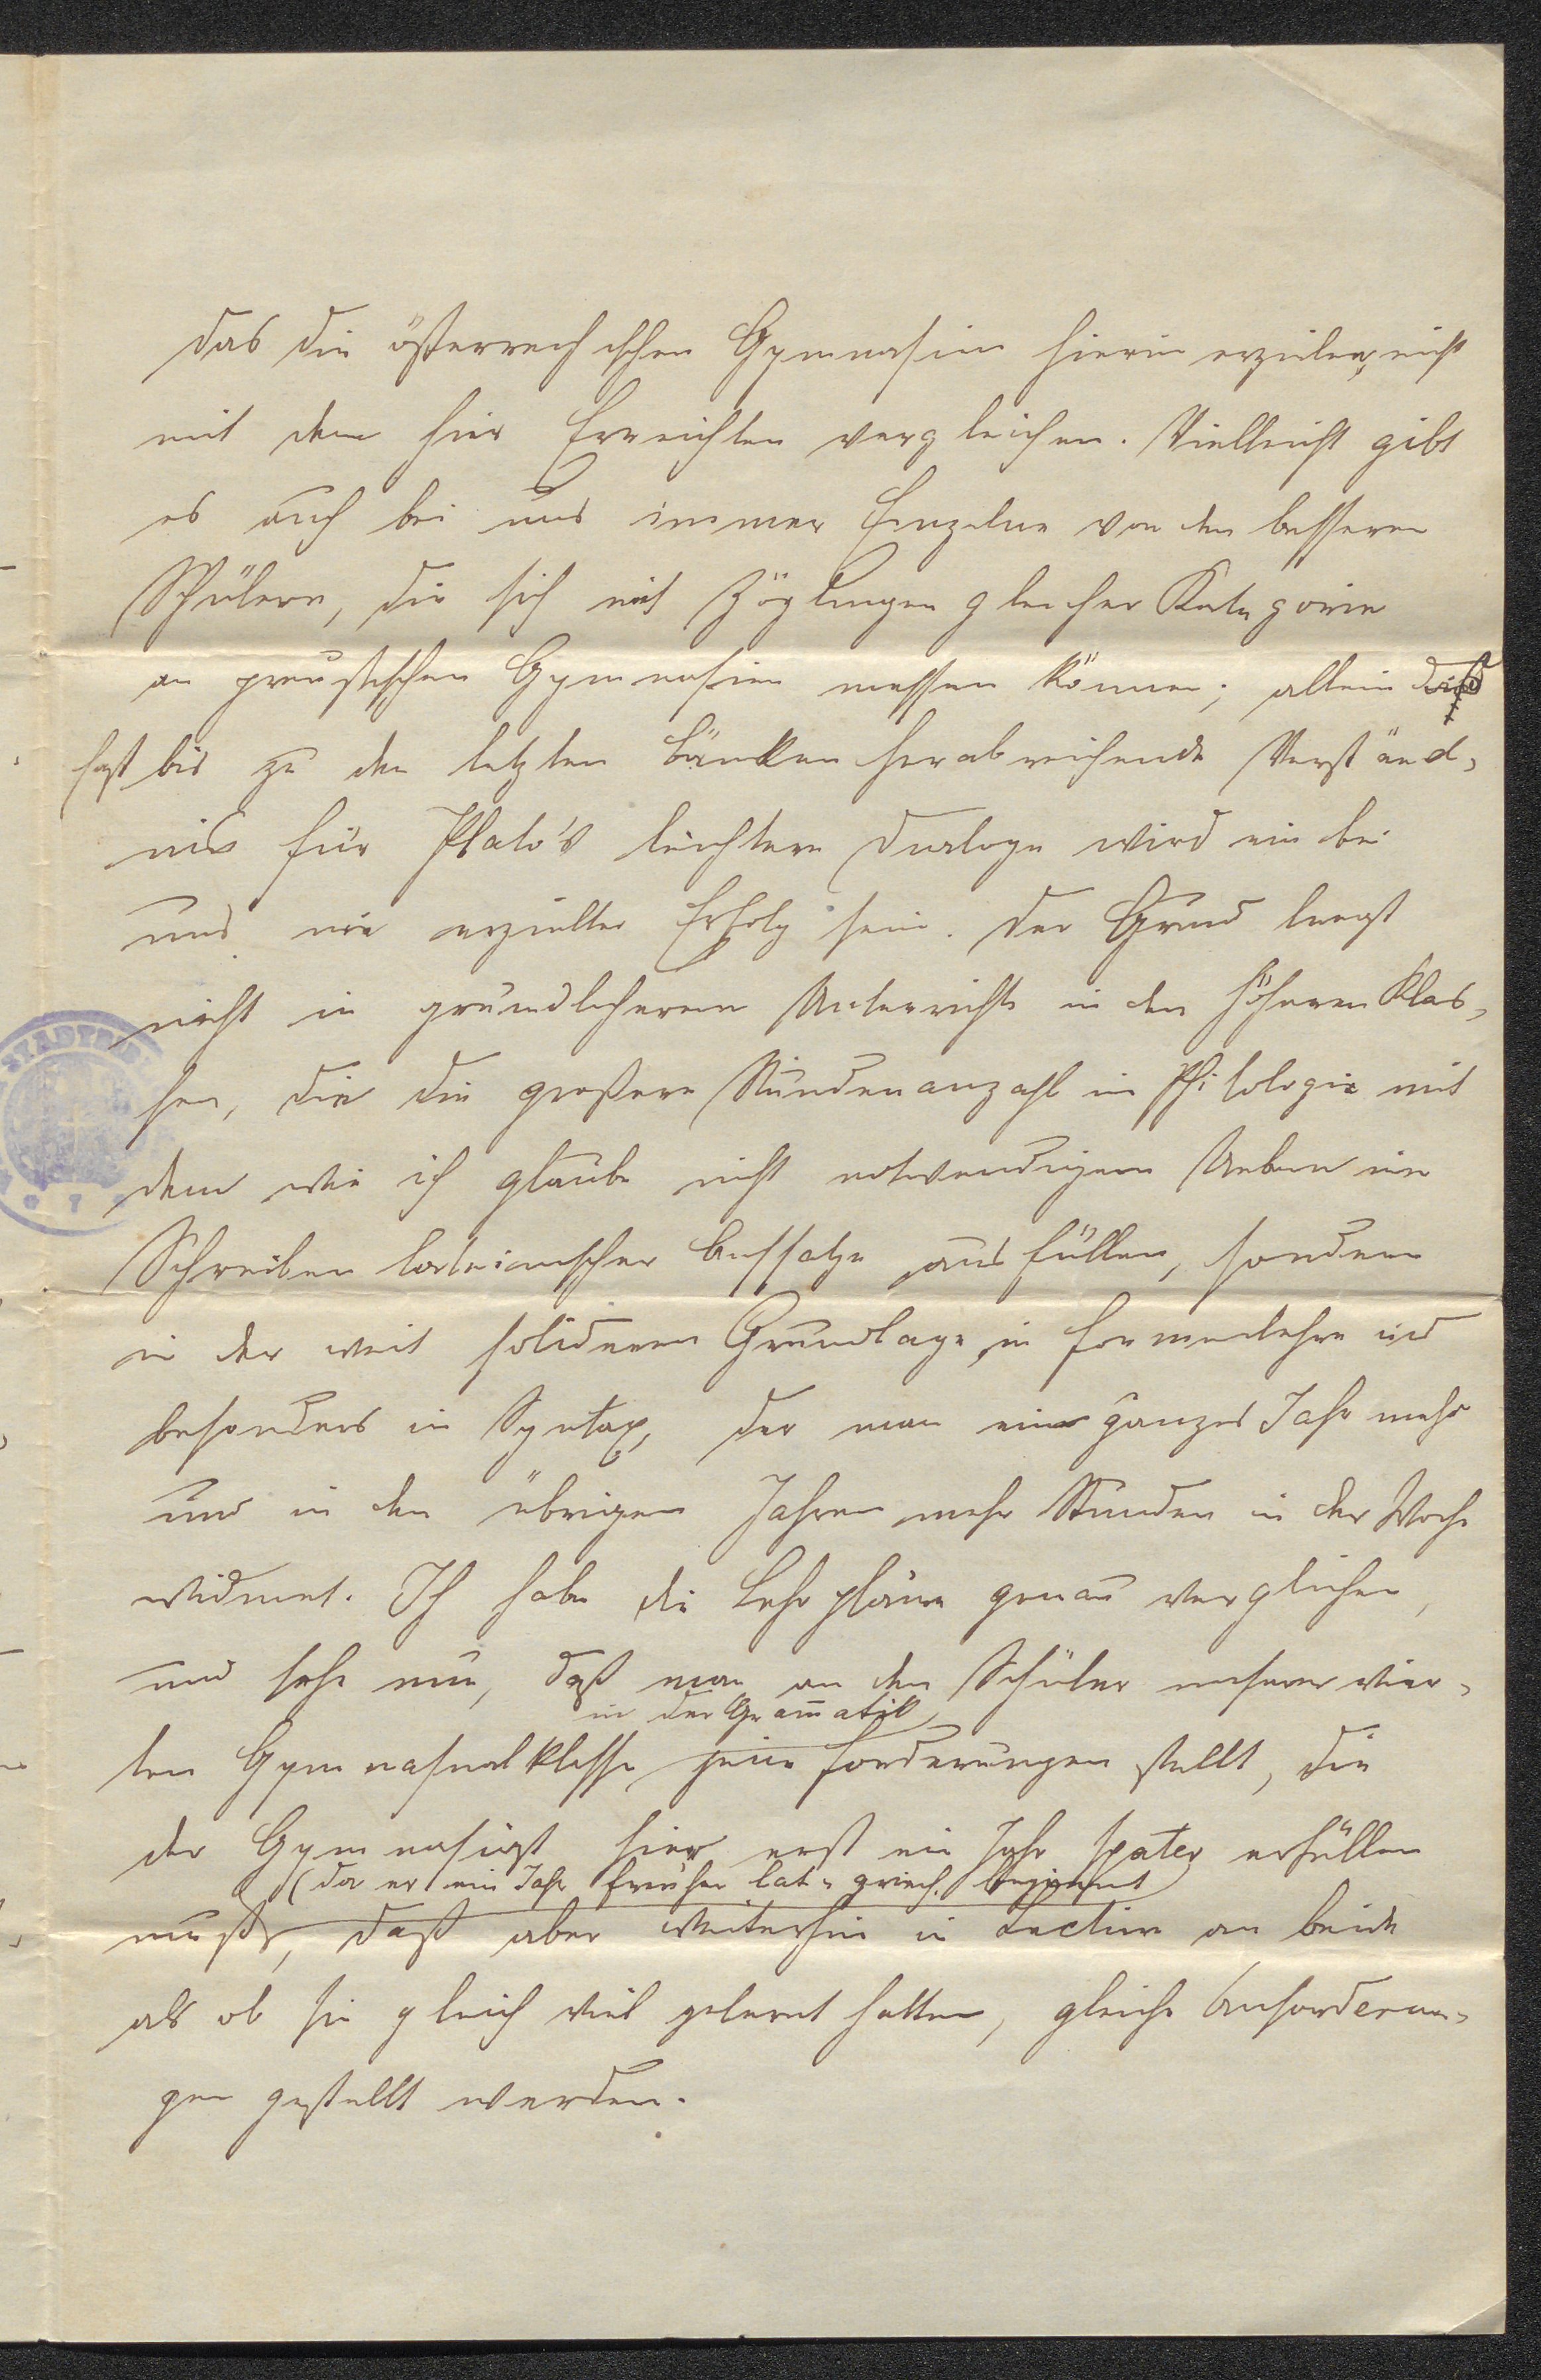 das die österreichischen Gymnasien hierin erzielen, nicht
mit dem hier Erreichten vergleichen. Vielleicht gibt
es auch bei uns immer Einzelne von den besseren
Schülern, die sich mit Zöglingen gleicher Kategorie
an preußischen Gymnasien messen können; allein das
fast bis zu den letzten Bänken herabreichende Verständ-
nis für Plato's leichtere Dialoge wird ein bei
uns nie erzielter Erfolg sein. Der Grund liegt
nicht in gründlicherem Unterrichte in den höheren Klas-
sen, die die größere Stundenanzahl in Philologie mit
dem wie ich glaube nicht notwendigen Ueben im
Schreiben lateinischer Aufsätze ausfüllen, sondern
in der weit solideren Grundlage in Formenlehre und
besonders in Syntax, der man ein ganzes Jahr mehr
und in den übrigen Jahren mehr Stunden in der Woche
widmet. Ich habe die Lehrpläne genau verglichen,
und sehe nun, daß man an den Schüler unserer vier-
in der Gram̄atik
ten Gymnasialklasse jene Forderungen stellt, die
der Gymnasiast hier erst ein Jahr später erfüllen
(da er ein Jahr früher lat. u. griech. beginnt)
muß, daß aber weiterhin in Lectüre an beide
als ob sie gleich viel gelernt hätten, gleiche Anforderun-
gen gestellt werden.